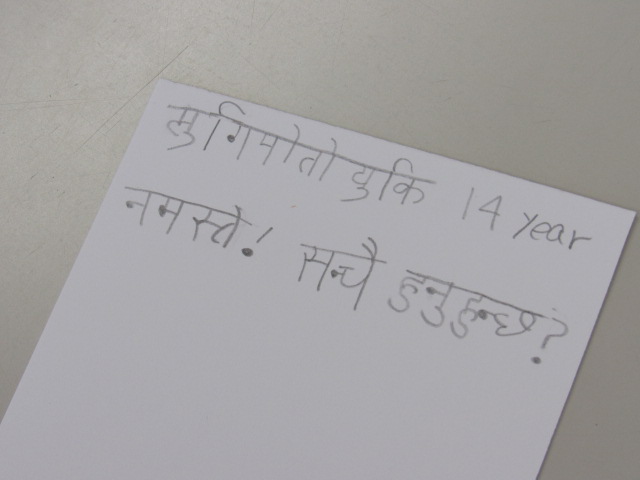 मुगिमोतो युकि 14 year
नमस्ते! सन्चै हुनुहुन्छ?